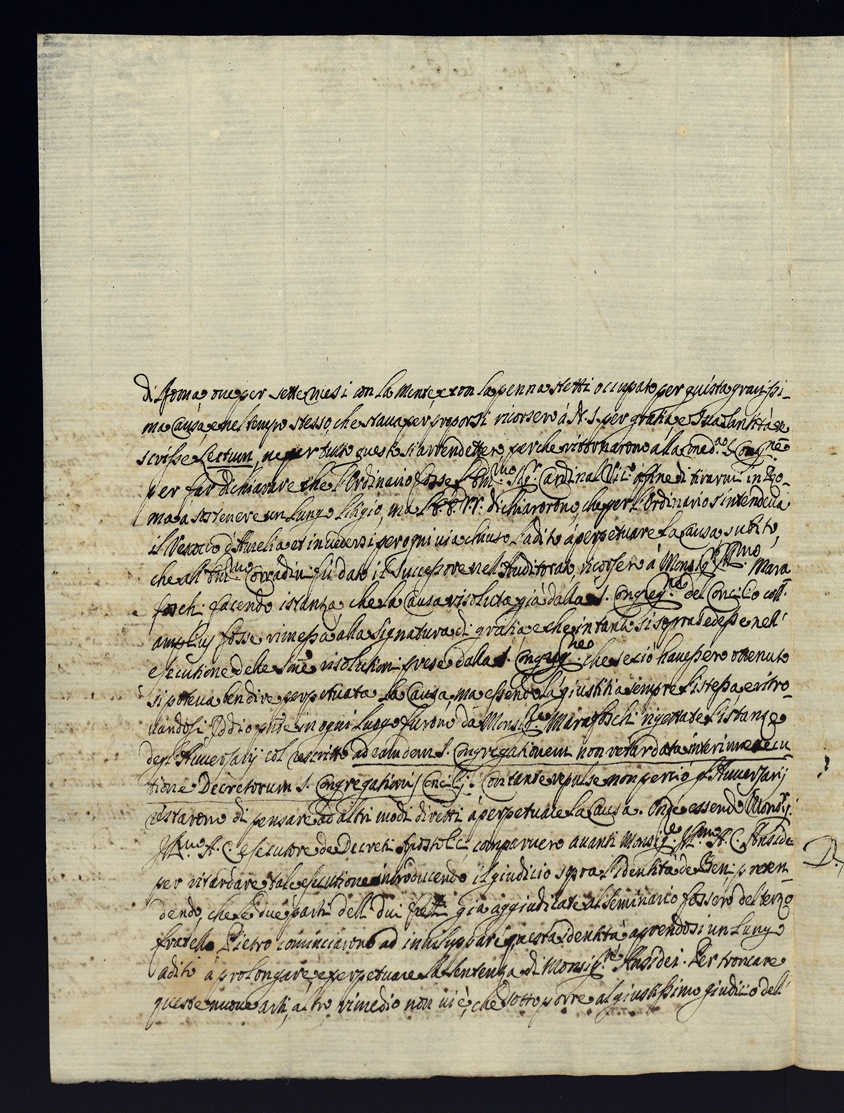 di Roma ove per sette mesi con la mente e con la penna stetti occupato per questa gravissi-
ma Causa, e nel tempo stesso, che stava per proporsi ricorsero à N. S. per gratia e Sua Santità re
scrisse Lectum, ne per tutto questo si arrendettero, perche ritornarono alla med.ma S. Cong.ne
per far dichiarare che l'Ordinario fosse l'Em.mo Sig.r Cardinal affine di tirarmi in Ro-
ma a sostenere un lungo litigio, ma l'EE. VV. dichiararono, che per l'Ordinario s'intendeva
il Vescovo d'Amelia et in vedersi per ogni via chiuso l'adito à perpetuare la Causa subito,
che all'Em.mo Corradini fù dato il Successore nell'Auditorato ricorsero à Monsig.r Ill.mo Mara
foschi facendo istanza che la Causa risoluta già dalla S. Congreg.ne del Concilio coll'
fosse rimessa alla Signatura di gratia e che in tanto si soprasedesse nell'
esecutione delle risolutioni prese dalla S. Congreg.ne che se ciò havessero ottenuto
si poteva ben dire perpetuata la Causa, ma essendo la giustitia sempre l'istessa, e ritro
vandosi Iddio in ogni luogo furono da Mons.re Marafoschi rigettate l'istanze
degl'Aversarij col rescritto ad eamdem S. Congregationem non retardata interim execu
tione Decretorum S. Congregationis Concilij. Con tante repulse non perciò gl'Aversarij
restarono di pensare ad altri modi diretti à perpetuare la Causa. Onde essendo Monsig.r
Ill.mo A. C. esecutore de Decreti Apostolici comparvero avanti Monsig.re Ill.mo A. C. Ansidei
per ritardare tale esecutione introducendo il giudicio sopra l'identità de Beni preten-
dendo, che le due parti delli dui fratelli già aggiudicate al Seminario fossero del terzo
fratello Pietro cominciarono ad inviluppare questa identità aprendosi un lungo
adito à prolongare, e perpetuare la sentenza di Monsig.re Ansidei. Per troncare
queste nuove arti, altro rimedio non vi è, che sottoporre al giustissimo giudicio dell'